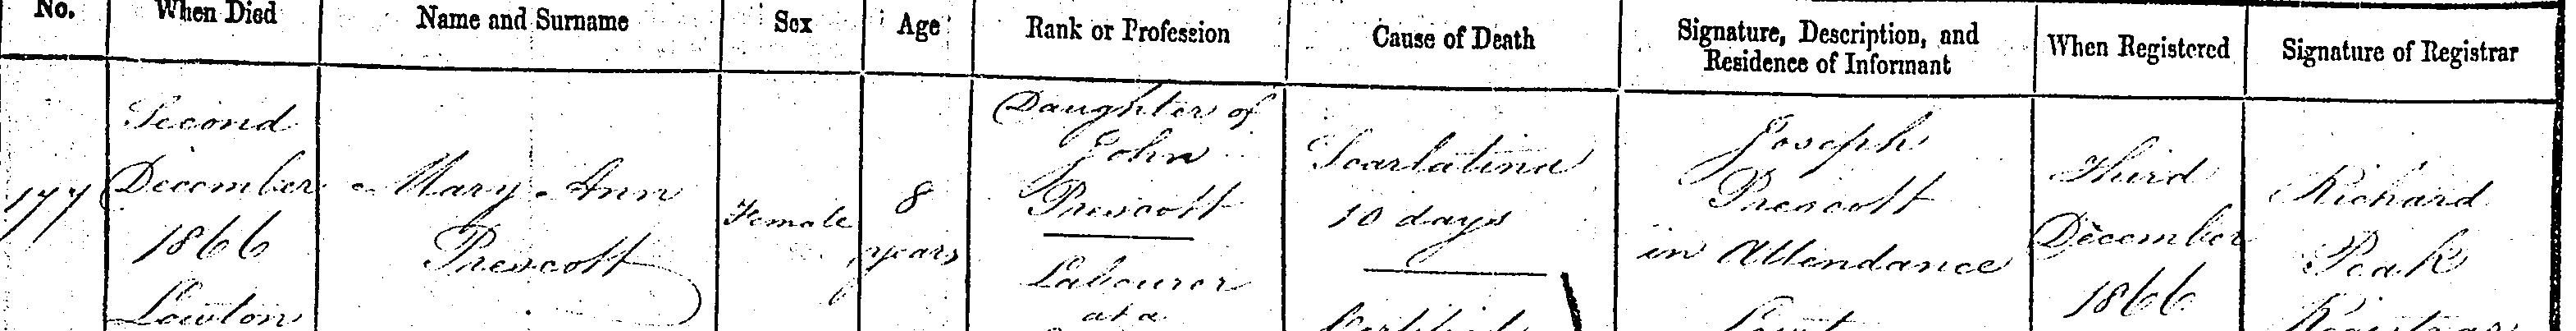 No. When Died Name and Surname Sex Age Rank or Profession Cause of Death Signature, Description, and Residence of Informant When Registered Signature of Registrar
177
Second
December
1866
Lowton
Mary Ann
Prescott
Female
8
years
Daughter of
John
Prescott
Labourer
at a
Scarlatina
10 days
Certified
Joseph
Prescott
in Attendance
Third
December
1866
Richard
Peak
Registrar